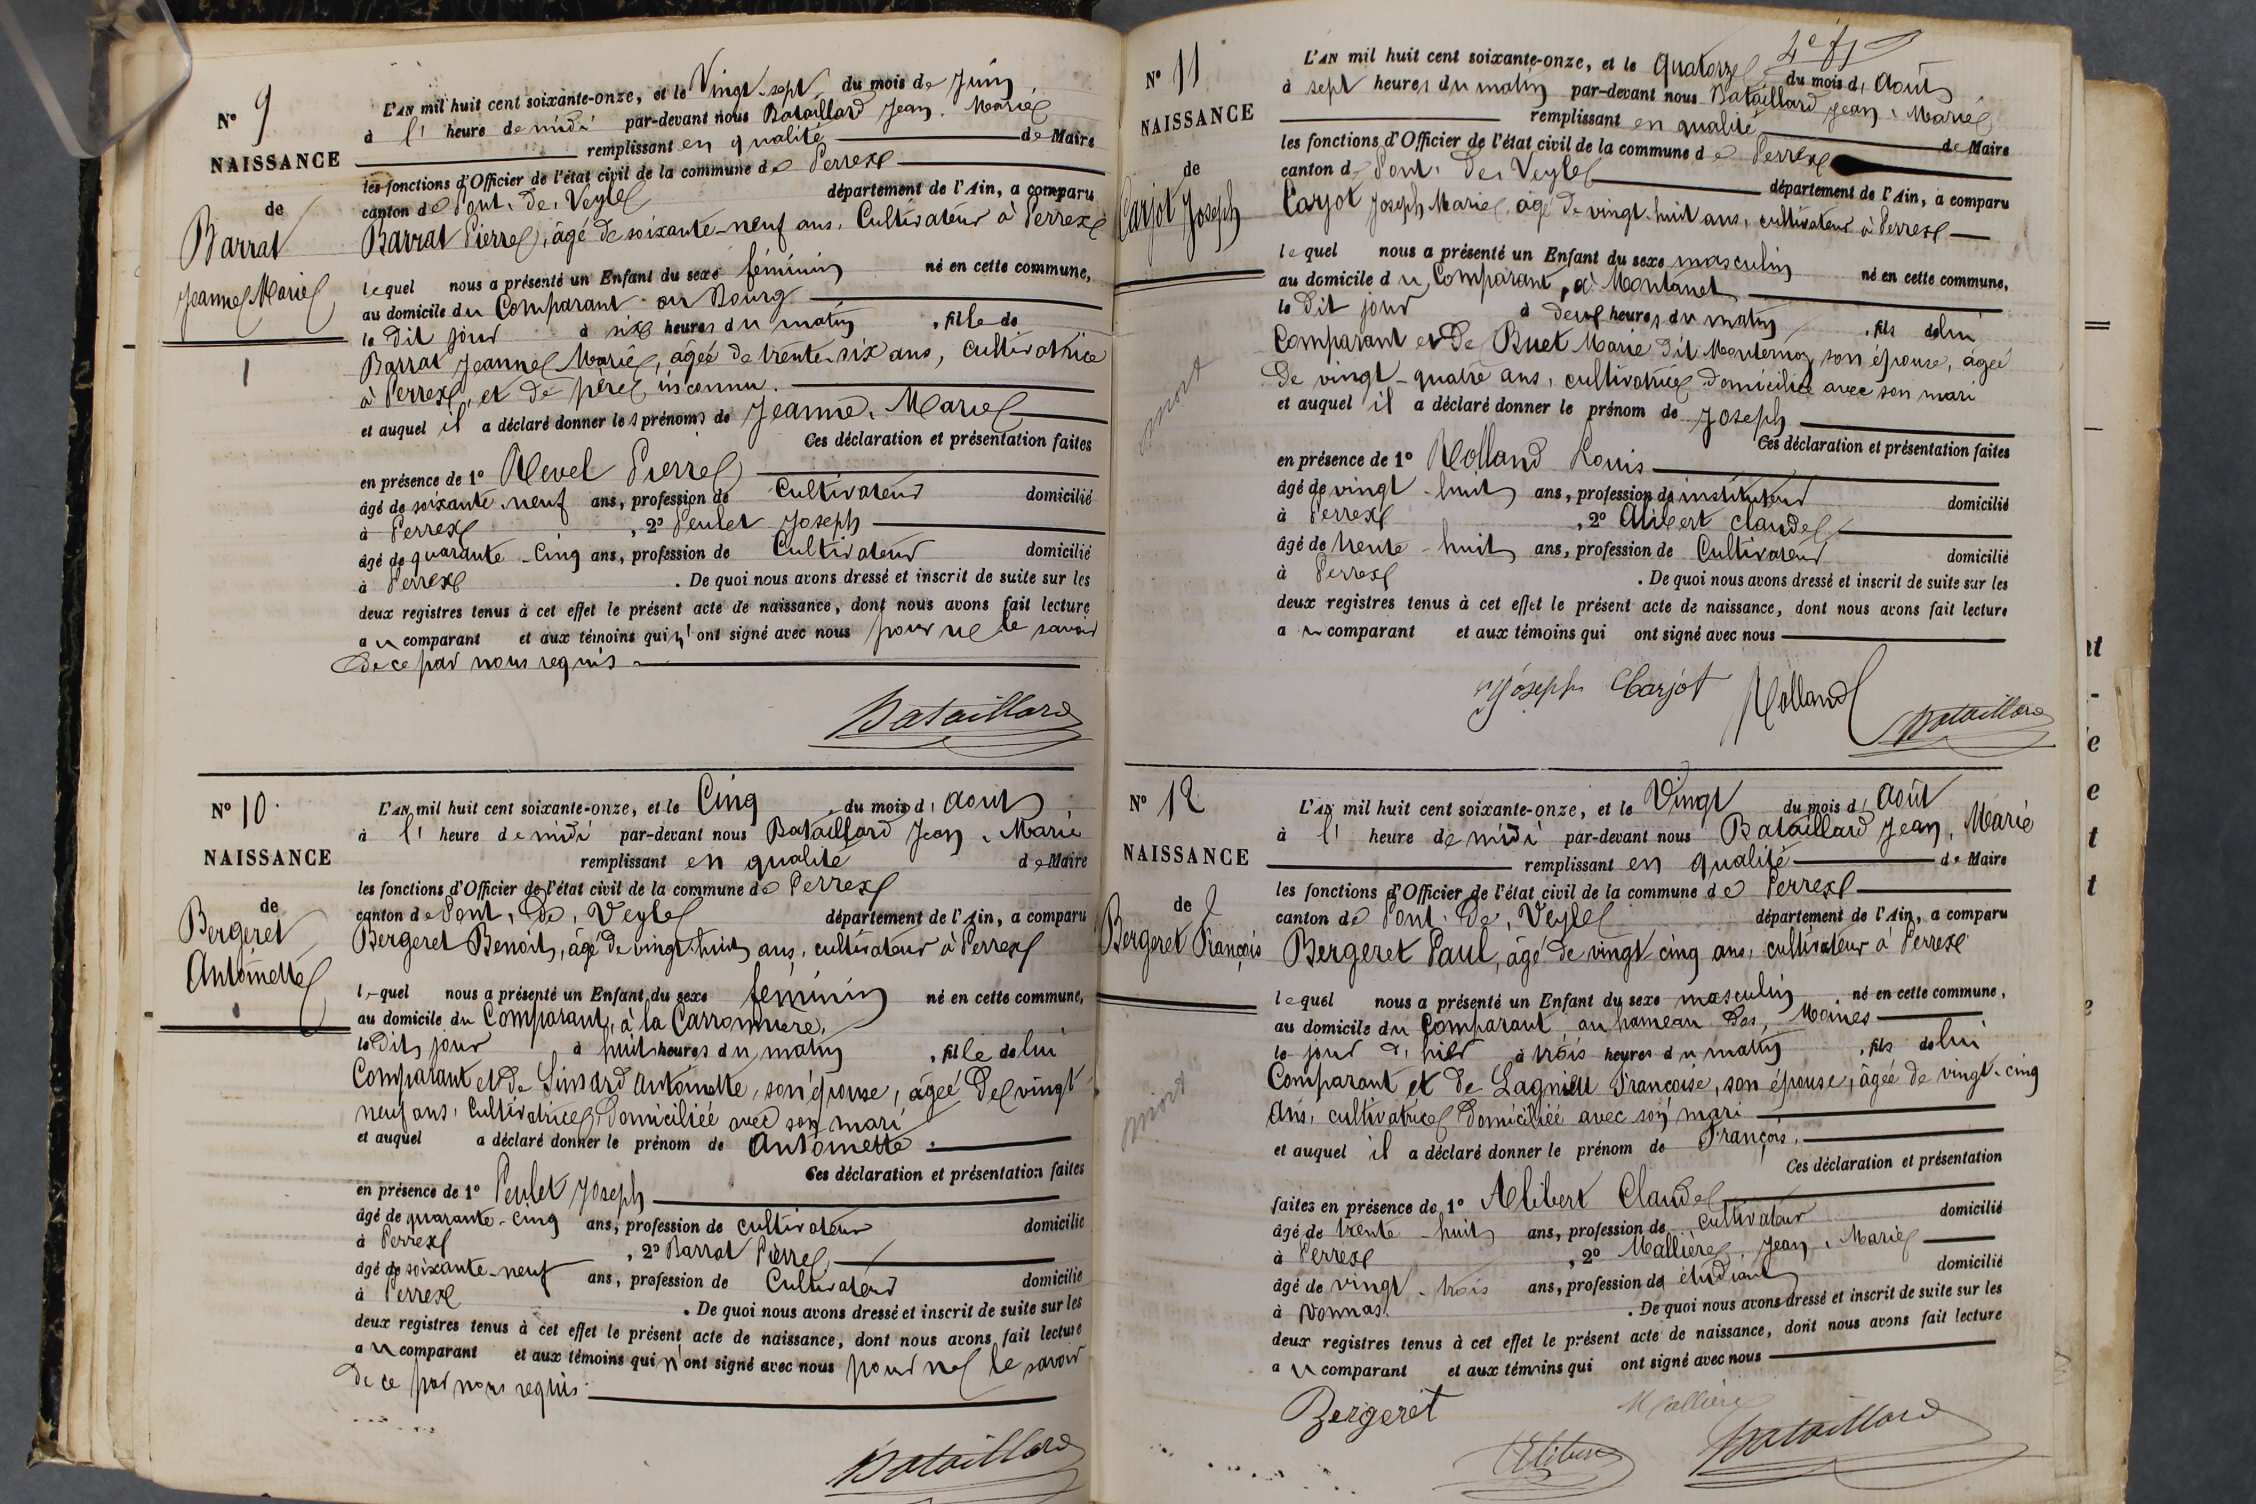 N° 9
NAISSANCE
de
Barrat
Jeanne Marie
1
L'AN mil huit cent soixante-onze, et le Vingt-sept du mois de Juin
à l' heure de midi par-devant nous Bataillard Jean, Marie
remplissant en qualité de Maire
les fonctions d'Officier de l'état civil de la commune de Perrex
canton de Pont, de, Veyle département de l'Ain, a comparu
Barrat Pierre, âgé de soixante-neuf ans, Cultivateur à Perrex
lequel nous a présenté un Enfant du sexe féminin né en cette commune,
au domicile du Comparant au Bourg
le dit jour à six heures du matin, fille de
Barrat Jeanne Marie, âgée de trente-six ans, cultivatrice
à Perrex, et de père inconnu.
et auquel il a déclaré donner les prénoms de Jeanne, Marie
Ces déclaration et présentation faites
en présence de 1° Revel Pierre
âgé de soixante-neuf ans, profession de Cultivateur domicilié
à Perrex, 2° Peulet Joseph
âgé de quarante-cinq ans, profession de Cultivateur domicilié
à Perrex. De quoi nous avons dressé et inscrit de suite sur les
deux registres tenus à cet effet le présent acte de naissance, dont nous avons fait lecture
au comparant et aux témoins qui n'ont signé avec nous pour ne le savoir
de ce par nous requis.
Bataillard
N° 10
NAISSANCE
de
Bergeret
Antoinette
L'AN mil huit cent soixante-onze, et le Cinq du mois d' Aout
à l' heure de midi par-devant nous Bataillard Jean, Marie
remplissant en qualité de Maire
les fonctions d'Officier de l'état civil de la commune de Perrex
canton de Pont, de, Veyle département de l'Ain, a comparu
Bergeret Benoit, âgé de vingt-huit ans, cultivateur à Perrex
lequel nous a présenté un Enfant du sexe féminin né en cette commune,
au domicile du Comparant, à la Carronnière,
le dit jour à huit heures du matin, fille de lui
Comparant et de Simard Antoinette, son épouse, âgée de vingt
neuf ans, Cultivatrice domiciliée avec son mari
et auquel a déclaré donner le prénom de Antoinette.
Ces déclaration et présentation faites
en présence de 1° Peulet Joseph
âgé de quarante-cinq ans, profession de cultivateur domicilié
à Perrex, 2° Barrat Pierre,
âgé de soixante-neuf ans, profession de Cultivateur domicilié
à Perrex. De quoi nous avons dressé et inscrit de suite sur les
deux registres tenus à cet effet le présent acte de naissance, dont nous avons fait lecture
au comparant et aux témoins qui n'ont signé avec nous pour ne le savoir
de ce par nous requis.
Bataillard
4e f
N° 11
NAISSANCE
de
Carjot Joseph
mort
L'AN mil huit cent soixante-onze, et le Quatorze du mois d' Aout
à sept heures du matin par-devant nous Bataillard Jean, Marie
remplissant en qualité de Maire
les fonctions d'Officier de l'état civil de la commune de Perrex
canton de Pont, de, Veyle département de l'Ain, a comparu
Carjot Joseph Marie, âgé de vingt-huit ans, cultivateur à Perrex
lequel nous a présenté un Enfant du sexe masculin né en cette commune,
au domicile du Comparant, à Montanet
le dit jour à deux heures du matin, fils de lui
Comparant et de Buet Marie dit Monternoz son épouse, âgée
de vingt-quatre ans, cultivatrice domiciliée avec son mari
et auquel il a déclaré donner le prénom de Joseph
Ces déclaration et présentation faites
en présence de 1° Rolland Louis
âgé de vingt-huit ans, profession de instituteur domicilié
à Perrex, 2° Alibert Claude
âgé de trente-huit ans, profession de Cultivateur domicilié
à Perrex. De quoi nous avons dressé et inscrit de suite sur les
deux registres tenus à cet effet le présent acte de naissance, dont nous avons fait lecture
au comparant et aux témoins qui ont signé avec nous
Joseph Carjot Rolland Bataillard
N° 12
NAISSANCE
de
Bergeret François
mort
L'AN mil huit cent soixante-onze, et le Vingt du mois d' Août
à l' heure de midi par-devant nous Bataillard Jean, Marie
remplissant en qualité de Maire
les fonctions d'Officier de l'état civil de la commune de Perrex
canton de Pont, de, Veyle département de l'Ain, a comparu
Bergeret Paul, âgé de vingt cinq ans, cultivateur à Perrex
lequel nous a présenté un Enfant du sexe masculin né en cette commune,
au domicile du Comparant au hameau des, Moines
le jour d'hier à trois heures du matin, fils de lui
Comparant et de Lagnieu Françoise, son épouse, âgée de vingt-cinq
ans, cultivatrice domiciliée avec son mari
et auquel il a déclaré donner le prénom de François.
Ces déclaration et présentation
faites en présence de 1° Alibert Claude
âgé de trente-huit ans, profession de cultivateur domicilié
à Perrex, 2° Mallière, Jean, Marie
âgé de vingt-trois ans, profession de étudiant domicilié
à Vonnas. De quoi nous avons dressé et inscrit de suite sur les
deux registres tenus à cet effet le présent acte de naissance, dont nous avons fait lecture
au comparant et aux témoins qui ont signé avec nous
Bergeret Mallière
Alibert Bataillard